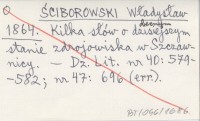 ŚCIBOROWSKI Władysław
1864. Kilka słów o dzisiejszym
obecnym
stanie zdrojowiska w Szczaw-
nicy. — Dz. Lit. nr 40: 579-
-582; nr 47: 696 (err).